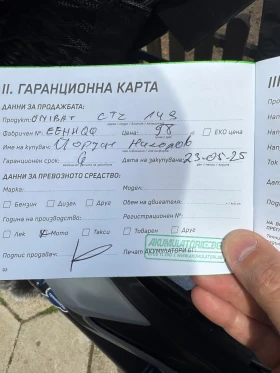 II. ГАРАНЦИОННА КАРТА
ДАННИ ЗА ПРОДАЖБАТА:
Продукт: UNIBAT CTZ 14S
Фабричен №: EEHHQQ Цена: 98 ЕКО цена
Име на купувач: Йордан Николов
Гаранционен срок: 6 Дата на закупуване: 23-05-25
ДАННИ ЗА ПРЕВОЗНОТО СРЕДСТВО:
Марка: Модел:
Бензин Дизел Друг Обем на двигателя:
Година на производство: Регистрационен №:
Лек Мото Такси Товарен Друг
Подпис продавач: Печат АКУМУЛАТОРИ БГ:
AKUMULATORI.BG
III